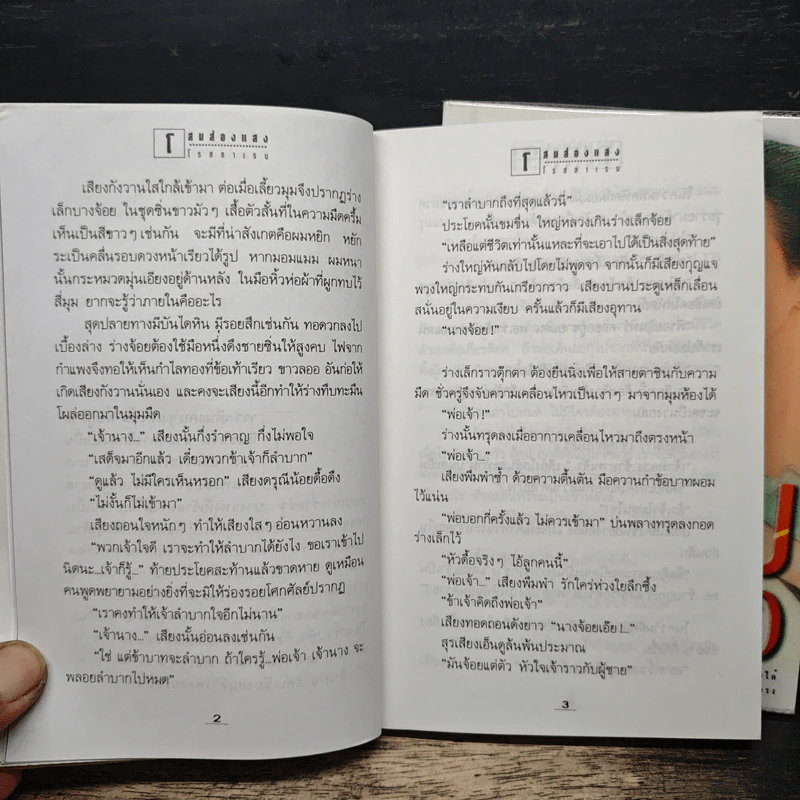 โ สมส่องแสง
โรสลาเรน
เสียงกังวานใสใกล้เข้ามา ต่อเมื่อเลี้ยวมุมจึงปรากฏร่าง
เล็กบางจ้อย ในชุดซิ่นขาวมัวๆ เสื้อตัวสั้นที่ในความมืดครึ้ม
เห็นเป็นสีขาวๆ เช่นกัน จะมีที่น่าสังเกตคือผมหยิก หยัก
ระเป็นคลื่นรอบดวงหน้าเรียวได้รูป หากมอมแมม ผมหนา
นั้นกระหมวดมุ่นเอียงอยู่ด้านหลัง ในมือหิ้วห่อผ้าที่ผูกทบไว้
สี่มุม ยากจะรู้ว่าภายในคืออะไร
สุดปลายทางมีบันไดหิน มีรอยสึกเช่นกัน ทอดวกลงไป
เบื้องล่าง ร่างจ้อยต้องใช้มือหนึ่งดึงชายซิ่นให้สูงคบ ไฟจาก
กำแพงจึงทอให้เห็นกำไลทองที่ข้อเท้าเรียว ขาวลออ อันก่อให้
เกิดเสียงกังวานนั่นเอง และคงจะเสียงนี้อีกทำให้ร่างทึบทะมึน
โผล่ออกมาในมุมมืด
“เจ้านาง...” เสียงนั้นกึ่งรำคาญ กึ่งไม่พอใจ
“เสด็จมาอีกแล้ว เดี๋ยวพวกข้าเจ้าก็ลำบาก”
“ดูแล้ว ไม่มีใครเห็นหรอก” เสียงดรุณีน้อยดื้อดึง
“ไม่งั้นก็ไม่เข้ามา”
เสียงถอนใจหนักๆ ทำให้เสียงใสๆ อ่อนหวานลง
“พวกเจ้าใจดี เราจะทำให้ลำบากได้ยังไง ขอเราเข้าไป
นิดนะ...เจ้าก็รู้...” ท้ายประโยคสะท้านแล้วขาดหาย ดูเหมือน
คนพูดพยายามอย่างยิ่งที่จะมิให้ร่องรอยโศกศัลย์ปรากฏ
“เราคงทำให้เจ้าลำบากใจอีกไม่นาน”
“เจ้านาง...” เสียงนั้นอ่อนลงเช่นกัน
“ใช่ แต่ข้าบาทจะลำบาก ถ้าใครรู้...พ่อเจ้า เจ้านาง จะ
พลอยลำบากไปหมด”
2
โ สมส่องแสง
โรสลาเรน
“เราลำบากถึงที่สุดแล้วนี่”
ประโยคนั้นขมขื่น ใหญ่หลวงเกินร่างเล็กจ้อย
“เหลือแต่ชีวิตเท่านั้นแหละที่จะเอาไปได้เป็นสิ่งสุดท้าย”
ร่างใหญ่หันกลับไปโดยไม่พูดจา จากนั้นก็มีเสียงกุญแจ
พวงใหญ่กระทบกันเกรียวกราว เสียงบานประตูเหล็กเลื่อน
สนั่นอยู่ในความเงียบ ครั้นแล้วก็มีเสียงอุทาน
“นางจ้อย!”
ร่างเล็กราวตุ๊กตา ต้องยืนนิ่งเพื่อให้สายตาชินกับความ
มืด ชั่วครู่จึงจับความเคลื่อนไหวเป็นเงาๆ มาจากมุมห้องได้
“พ่อเจ้า!”
ร่างนั้นทรุดลงเมื่ออาการเคลื่อนไหวมาถึงตรงหน้า
“พ่อเจ้า...”
เสียงพึมพำซ้ำ ด้วยความตื้นตัน มือควานกำข้อบาทผอม
ไว้แน่น
“พ่อบอกกี่ครั้งแล้ว ไม่ควรเข้ามา” บ่นพลางทรุดลงกอด
ร่างเล็กไว้
“หัวดื้อจริงๆ ไอ้ลูกคนนี้”
“พ่อเจ้า...” เสียงพึมพำ รักใคร่ห่วงใยลึกซึ้ง
“ข้าเจ้าคิดถึงพ่อเจ้า”
เสียงทอดถอนดังยาว “นางจ้อยเอ๊ย!...”
สุรเสียงเอ็นดูล้นพ้นประมาณ
“มันจ้อยแต่ตัว หัวใจเจ้าราวกับผู้ชาย”
3